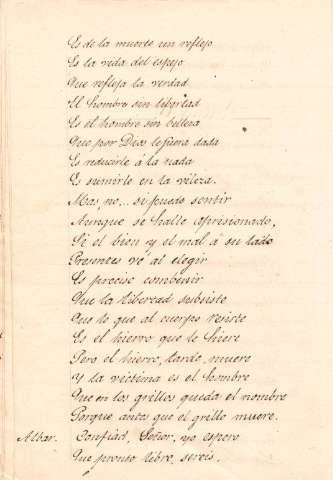 Es de la muerte un reflejo
Es la vida del espejo
Que refleja la verdad
El hombre sin libertad
Es el hombre sin belleza
Que por Dios le fuera dada
Es reducirle á la nada
Es sumirle en la vileza.
Mas, no... si puedo sentir
Aunque se halle aprisionado,
Si el bien y el mal á su lado
Presentes vé al elegir
Es preciso combenir
Que la libertad subsiste
Que lo que al cuerpo resiste
Es el hierro que le hiere
Pero el hierro, tarde, muere
Y la víctima es el hombre
Que en los grillos queda el nombre
Porque antes que el grillo muere.
Albar. Confiad, Señor, yo espero
Que pronto libre, sereis.